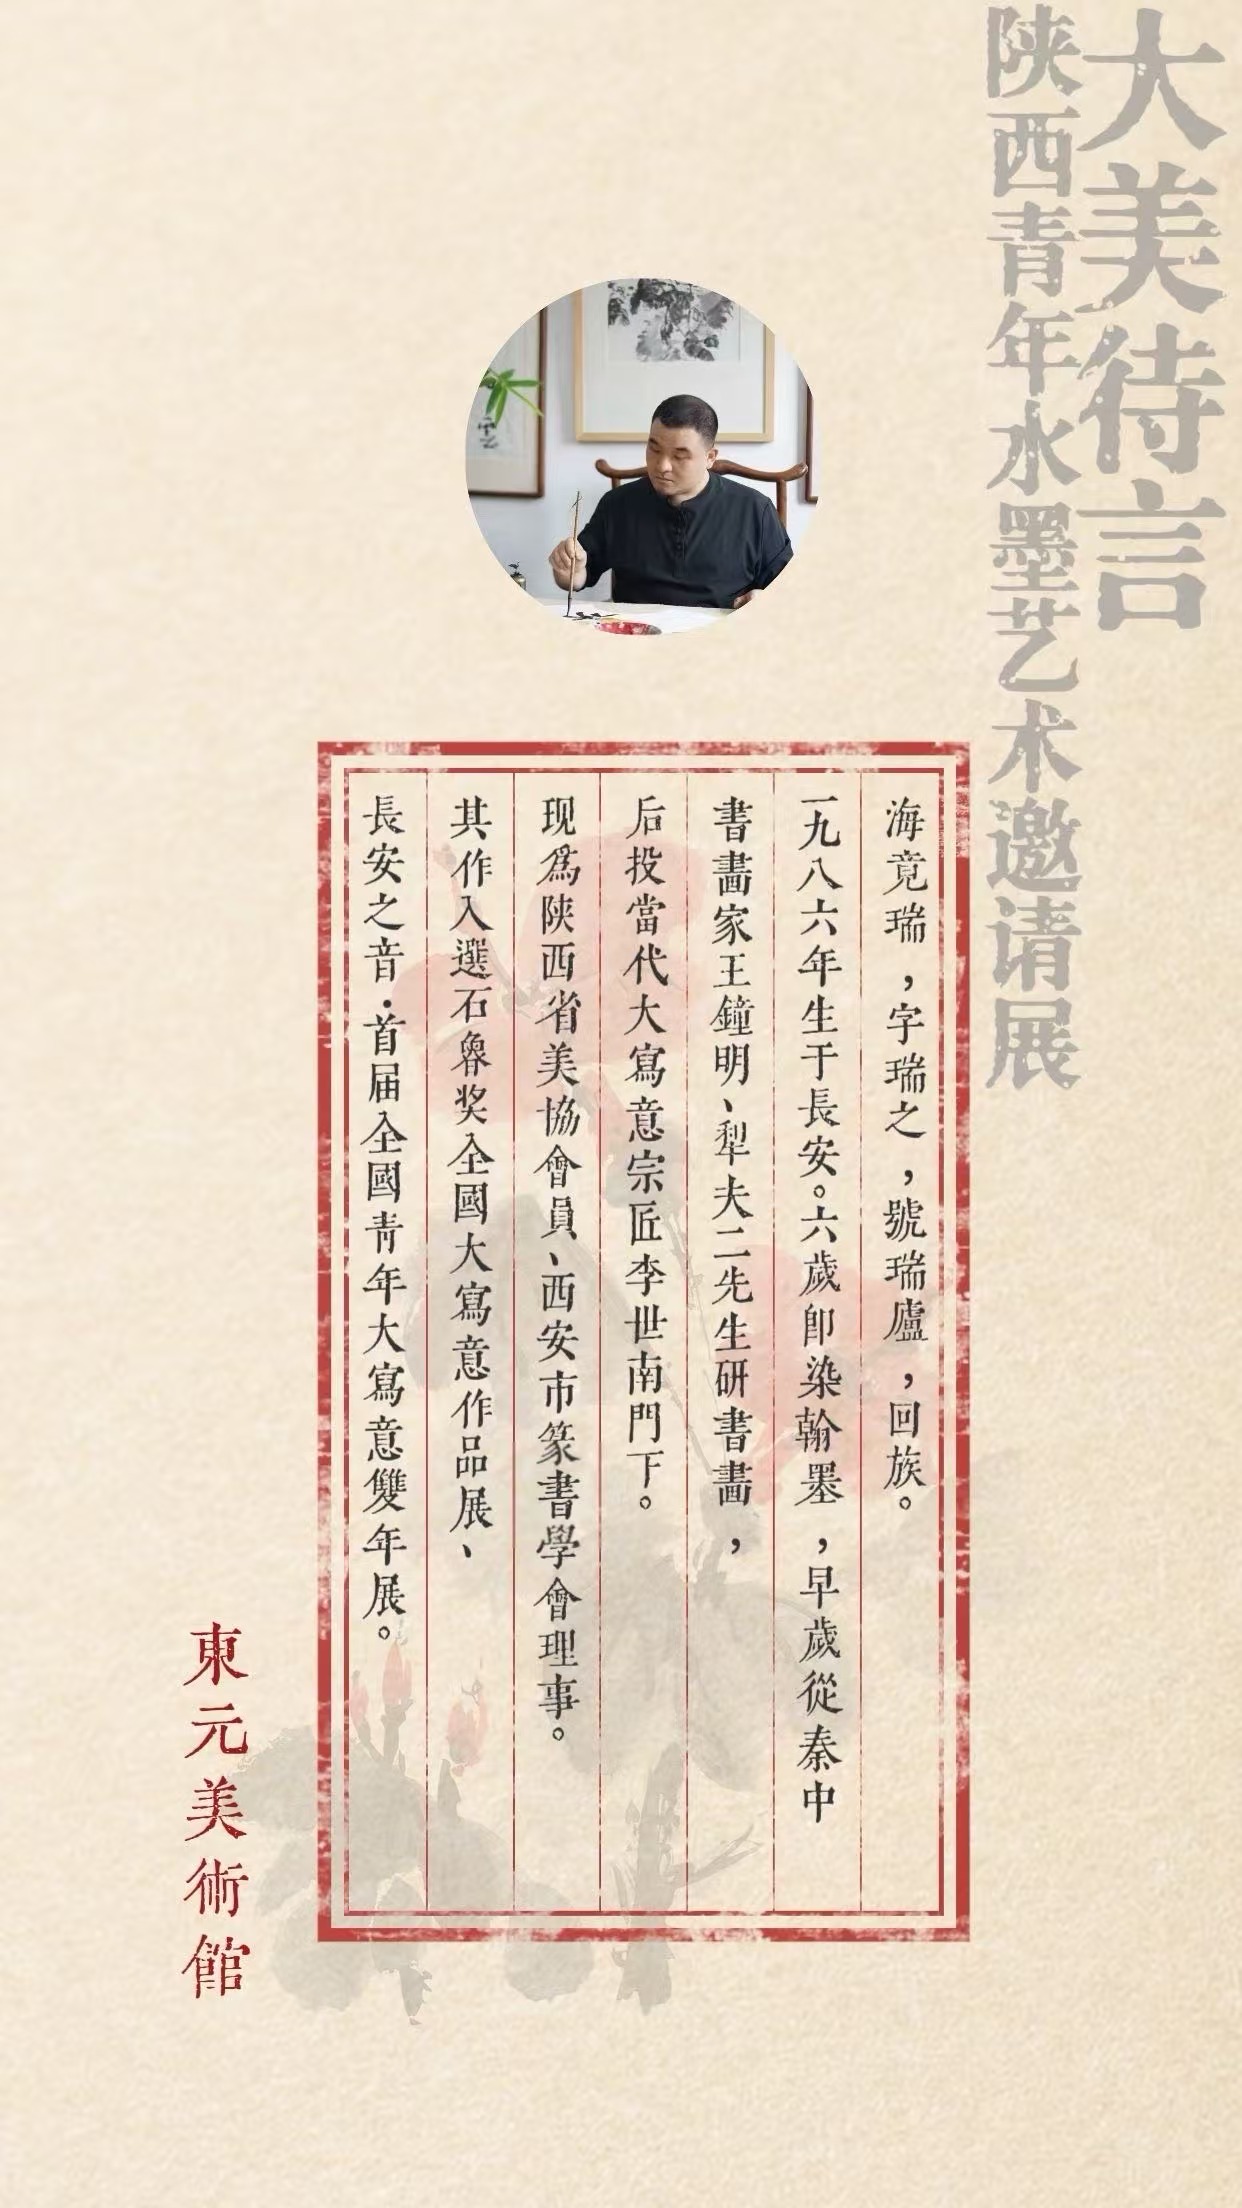 大美待言
陕西青年水墨艺术邀请展
海竟瑞，字瑞之，號瑞廬，回族。
一九八六年生于長安。六歲卽染翰墨，早歲從秦中
書畫家王鐘明、犁夫二先生研書畫，
后投當代大寫意宗匠李世南門下。
现爲陕西省美協會員、西安市篆書學會理事。
其作入選石魯奖全國大寫意作品展、
長安之音·首届全國青年大寫意雙年展。
東元美術館